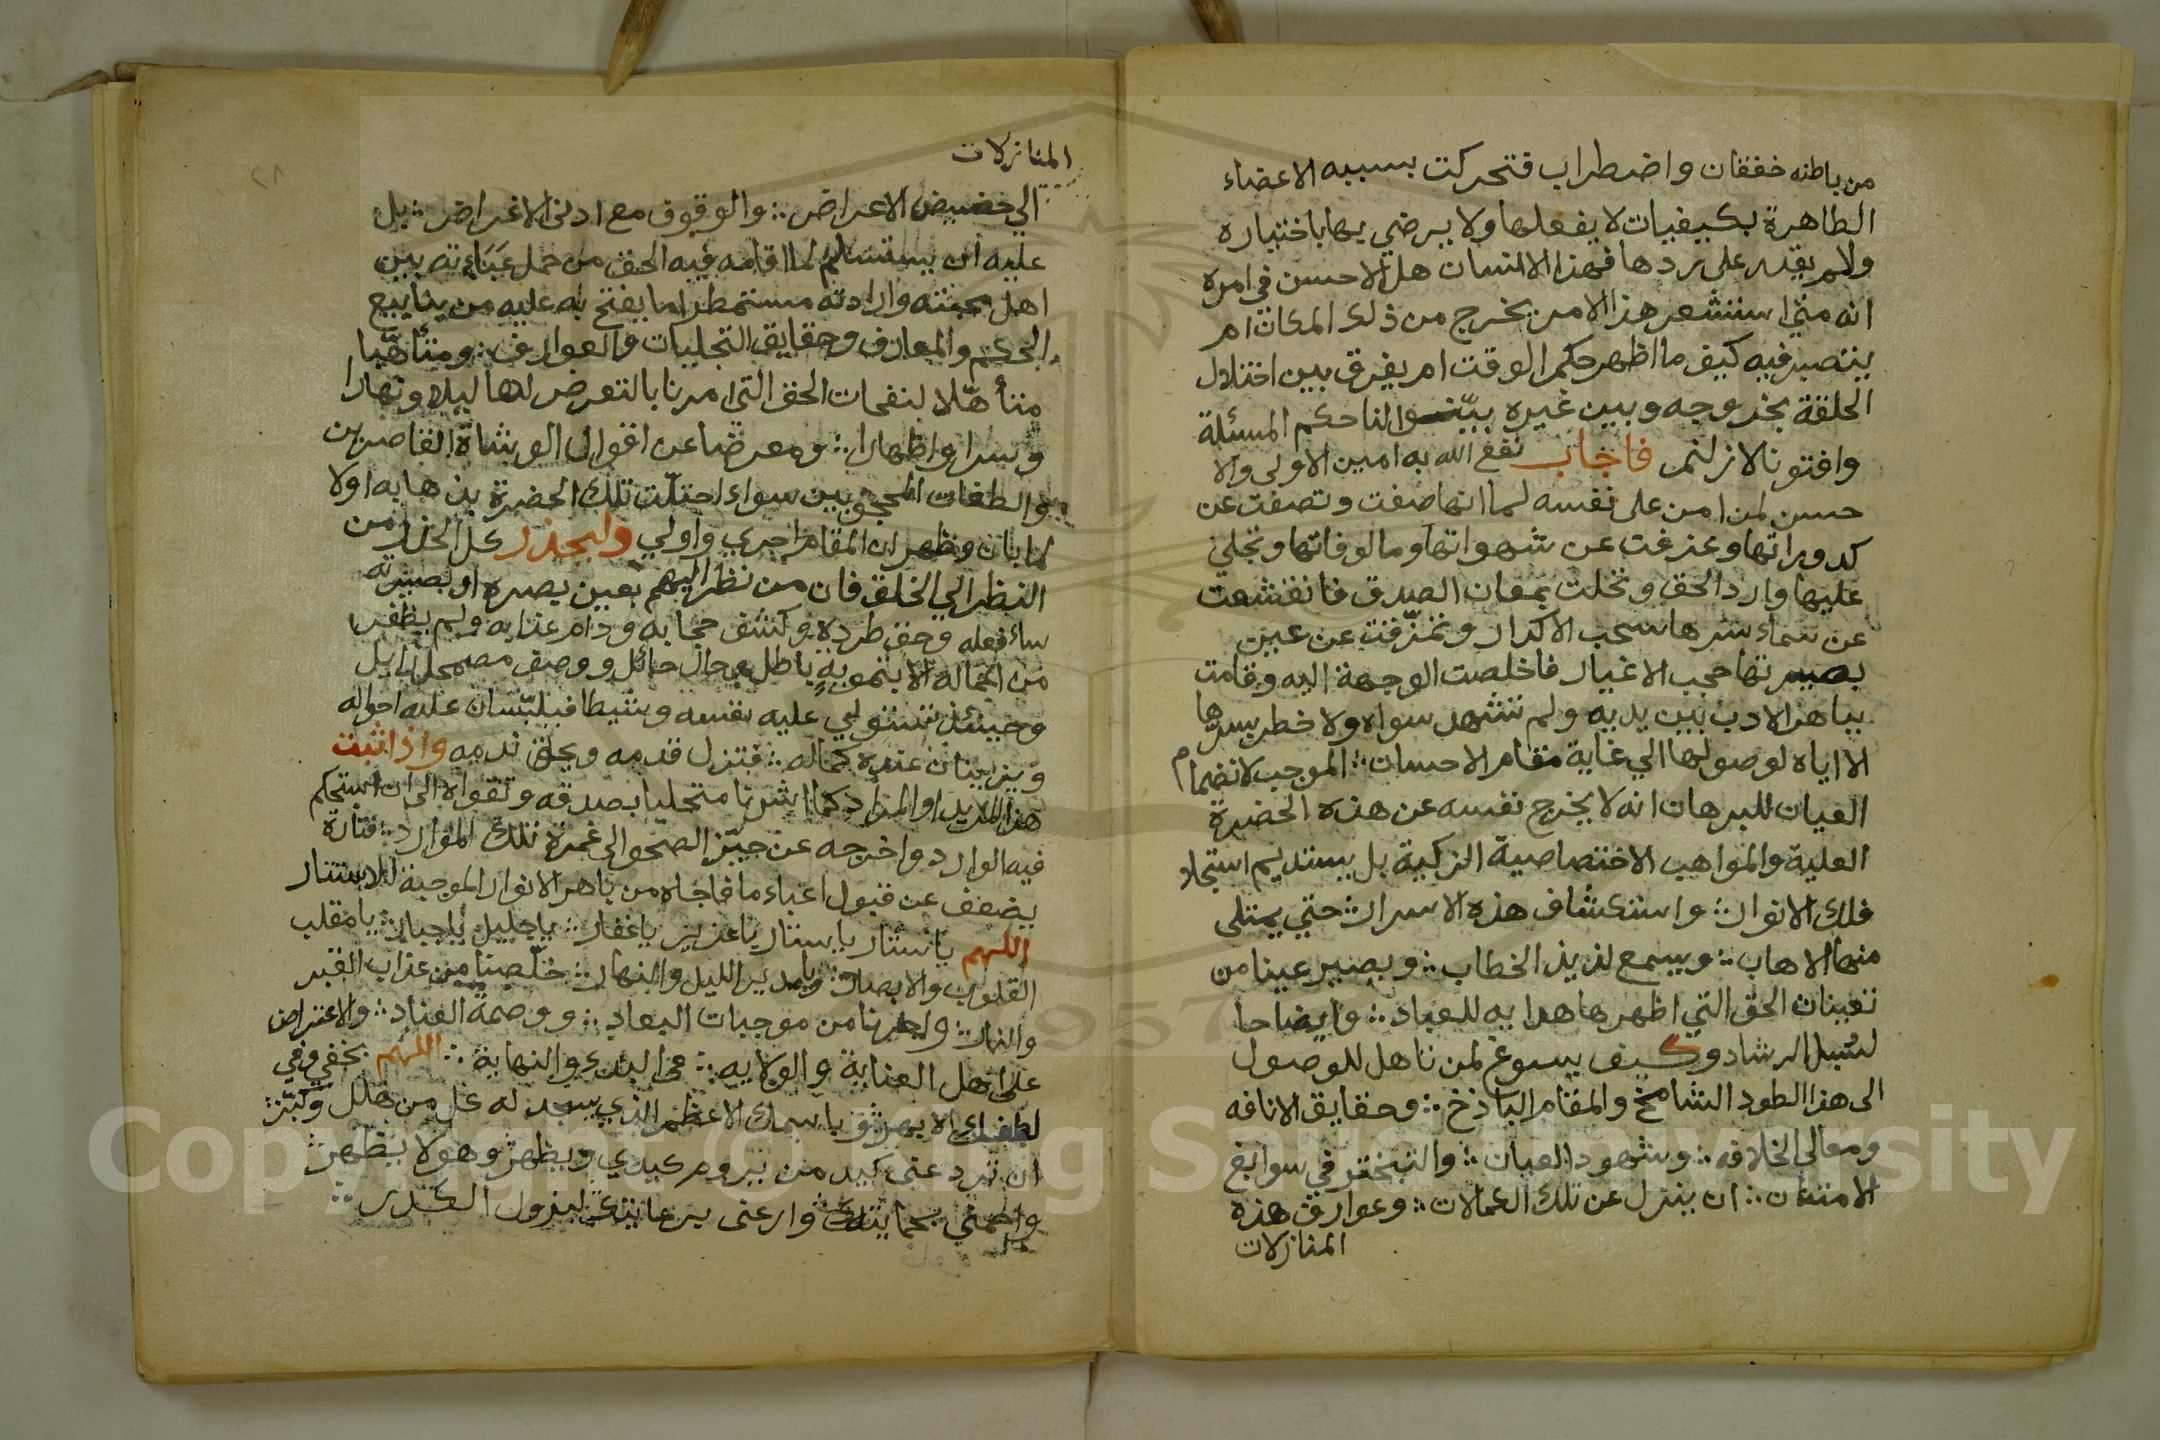 من باطنه خفقان واضطراب فتحركت بسببه الاعضاء
الظاهرة بكيفيات لا يفعلها ولا يرضي بها باختياره
ولم يقدر على ردها فهذا الانسان هل الاحسن في امره
انه متي استشعر هذا الامر يخرج من ذلك المكان ام
يتصبر فيه كيف ما اظهر حكم الوقت ام يفرق بين اختلال
الحلقة بخروجه وبين غيره بينوا لنا حكم المسئلة
وافتونا لازلتم فاجاب نفع الله به امين الاولى والا
حسن لمن امن على نفسه لما انها صفت وتصفت عن
كدوراتها وعزفت عن شهواتها ومالوفاتها وتجلي
عليها وارد الحق وتحلت بمعان الصدق فانقشعت
عن سماء سرها سحب الاكدار وتمزقت عن عين
بصيرتها حجب الاغيار فاخلصت الوجهة اليه وقامت
بباهر الادب بين يديه ولم تشهد سواه ولا خطر بسرها
الا اياه لوصولها الي غاية مقام الاحسان الموجب لانضمام
العيان للبرهان انه لا يخرج نفسه عن هذه الحضرة
العلية والمواهب الاختصاصية الزكية بل يستديم استجلاء
تلك الانوار واستكشاف هذه الاسرار حتي يمتلى
منها الاهاب ويسمع لذيذ الخطاب ويصير عينا من
تعينات الحق التي اظهرها هداية للعباد وايضاحا
لسبل الرشاد وكيف يسوغ لمن تاهل للوصول
الى هذا الطود الشامخ والمقام الباذخ وحقايق الانافه
ومعالى الخلافه وشهود العيان والتبختر في سوابغ
الامتنان ان ينزل عن تلك الكمالات وعوارف هذه
المنازلات
المنازلات
الي حضيض الاعراض والوقوف مع ادنى الاغراض بل
عليه ان يستسلم لما اقامه فيه الحق من حمل عنايته بين
اهل محبته وارادته مستمطرا ما يفتح به عليه من ينابيع
الحكم والمعارف وحقايق التجليات والعوارف ومتأهبا
متأهلا لنفحات الحق التي امرنا بالتعرض لها ليلا ونهارا
وسرا واظهارا ومعرضا عن اقوال الوشاة القاصرين
والطغات المحجوبين سواء اختلت تلك الحضرة بذهابه اولا
لما بان وظهر ان المقام احرى واولي وليحذر كل الحذر من
النظر الي الخلق فان من نظر اليهم بعين بصره او بصيرته
ساء فعله وحق طرده وكشف حجابه ودام عذابه ولم يظفر
من الكمال الا بتمويه باطل وحال حائل ووصف مضمحل زايل
وحينئذ تستولي عليه نفسه وشيطانه فيلبسان عليه احواله
ويزينان عنده كماله فتزل قدمه ويحلق ندمه واذا ثبت
هذا المريد او المراد كما اشرنا متحليا بصدقه وتقواه الى ان استحكم
فيه الوارد واخرجه عن حيز الصحو الى غمرة تلك الموارد فتارة
يضعف عن قبول اعباء ما فاجاه من باهر الانوار الموجبة للاستتار
اللهم يا ستار يا ستار يا عزيز يا غفار يا جليل يا جبار يا مقلب
القلوب والابصار ويا مدير الليل والنهار خلصنا من عذاب القبر
والنار واجرنا من موجبات البعاد ووصمة العناد والاعتراض
على اهل العناية والولايه في البدء والنهاية اللهم بخفي وفي
لطفك الابهر وباسمك الاعظم الذي يسجد له كل من هلل وكبر
ان ترد عنى كيد من يروم كيدي ويظهر وهو لا يظهر
واحمني بحمايتك وارعنى برعايتك لنزول الكدر